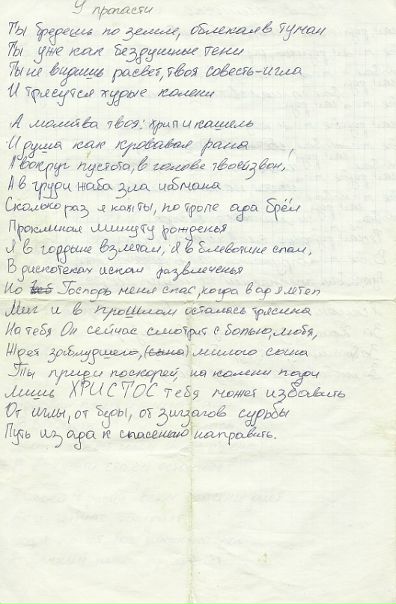 У пропасти
Ты бредешь по земле, облекаяв туман
Ты уже как бездушные тени
Ты не видишь расвет, твоя совесть-игла
И трясутся худые колени
А молитва твоя: хрип и кашель
И душа как кровавая рана
А вокруг пустота, в голове твоей звон,
А в груди жаба зла и обмана
Сколько раз я как ты, по тропе ада брёл
Проклиная минуту рожденья
Я в гордыне взлетал, я в блевотине спал,
В дискотеках искал развлеченья
Но Господь меня спас, когда в ад я летел
Миг и в прошлом осталась трясина
На тебя Он сейчас смотрит с болью, любя,
Ждет заблудшего, (сына) милого сына
Ты приди поскорей, на колени пади
Лишь ХРИСТОС тебя может избавить
От иглы, от беды, от зигзагов судьбы
Путь из ада к спасенью направить.